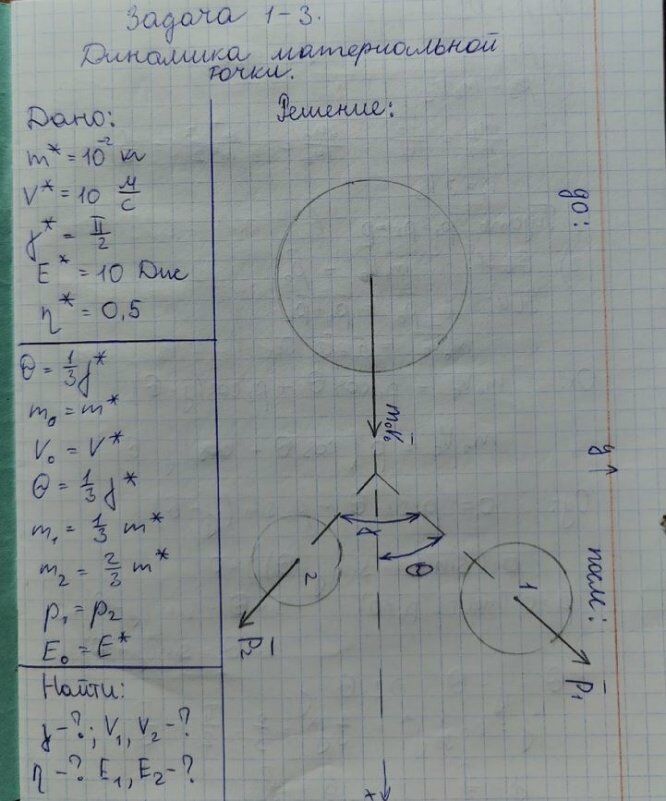 Задача 1-3.
Динамика материальной
точки.
Дано:
m* = 10⁻² кг
V* = 10 м/с
γ* = π/2
E* = 10 Дж
η* = 0,5
θ = 1/3 γ*
m₀ = m*
V₀ = V*
θ = 1/3 γ*
m₁ = 1/3 m*
m₂ = 2/3 m*
p₁ = p₂
E₀ = E*
Найти:
γ-?; V₁, V₂-?
η-? E₁, E₂-?
Решение:
до:
m₀V̄₀
y
после:
1
p̄₁
θ
2
p̄₂
x